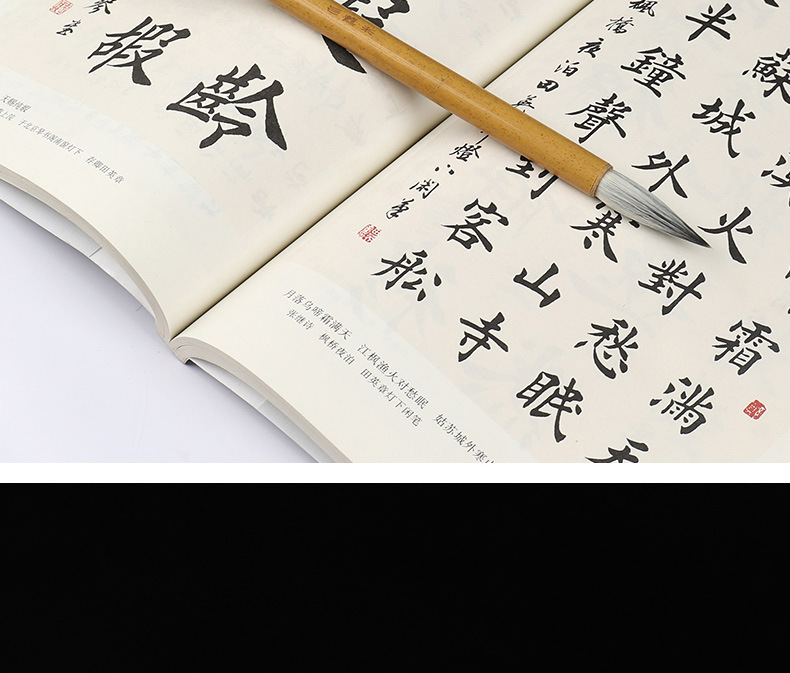 霜滿
火對愁眠
蘇城外寒山寺
半鐘聲到客船
楓橋夜泊田英
燈下閑筆
月落乌啼霜满天　江枫渔火对愁眠　姑苏城外寒山
张继诗　枫桥夜泊　田英章灯下闲笔
齡
嘏
天赐纯嘏
灯下　存卿田英章